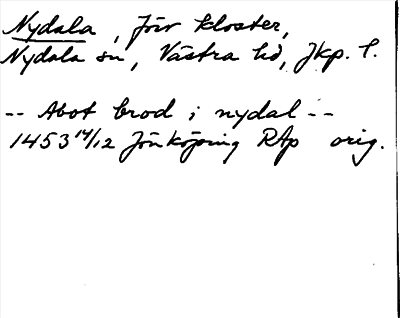 Nydala, förv kloster,
Nydala sn, Västra hd, Jkp. l.
-- Abot brod i nydal --
1453 14/12 Jönköping RAp orig.